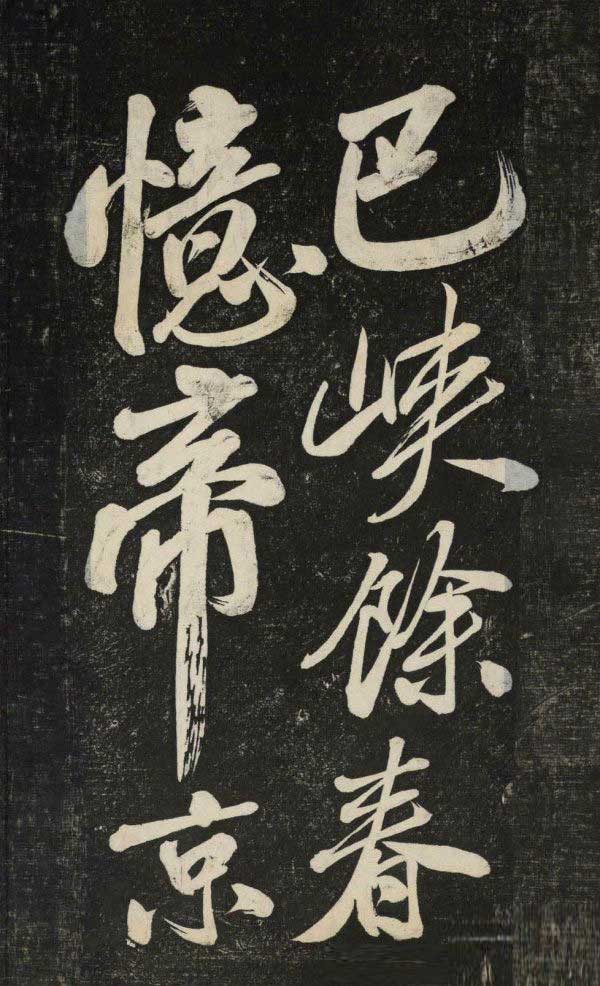 巴峽餘春
憶帝京